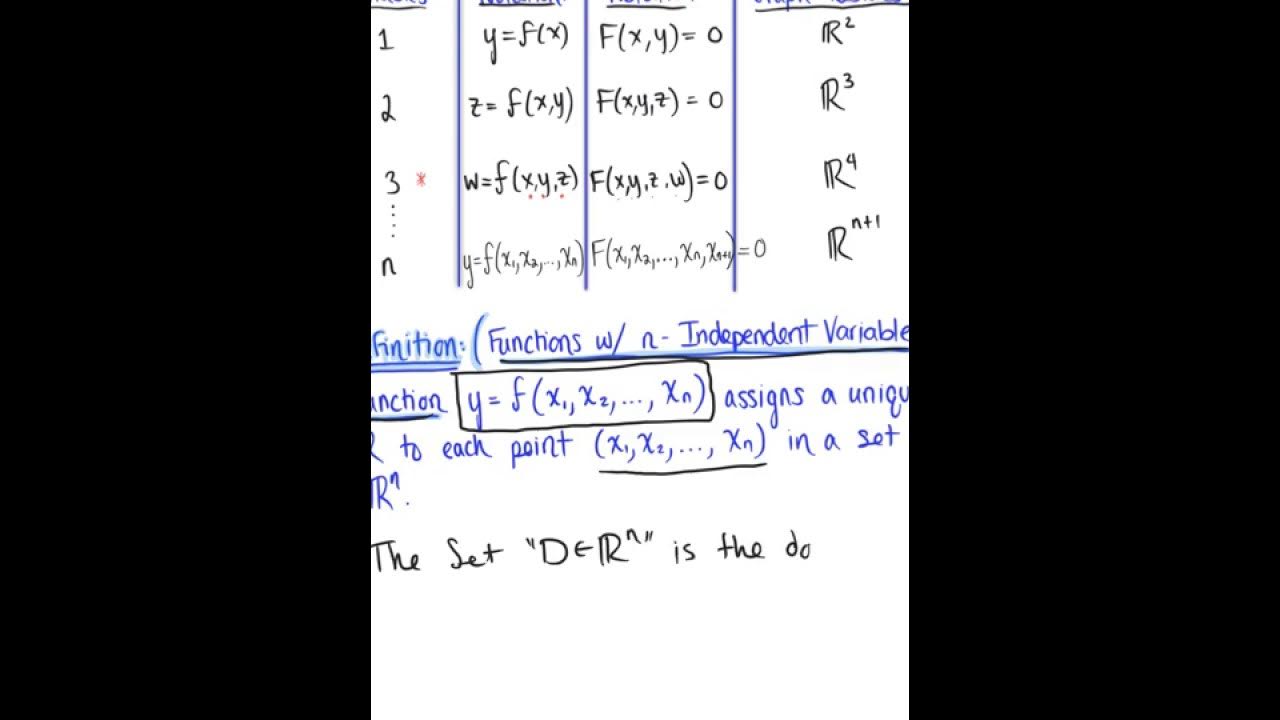 1 y=f(x) F(x,y)=0 ℝ²
2 z=f(x,y) F(x,y,z)=0 ℝ³
3 * w=f(x,y,z) F(x,y,z,w)=0 ℝ⁴
n y=f(x₁,x₂,...,xₙ) F(x₁,x₂,...,xₙ,xₙ₊₁)=0 ℝⁿ⁺¹
finition: (Functions w/ n-Independent Variable
unction y=f(x₁,x₂,...,xₙ) assigns a uniqu
ℝ to each point (x₁,x₂,...,xₙ) in a set
ℝⁿ.
The Set "D∈ℝⁿ" is the do